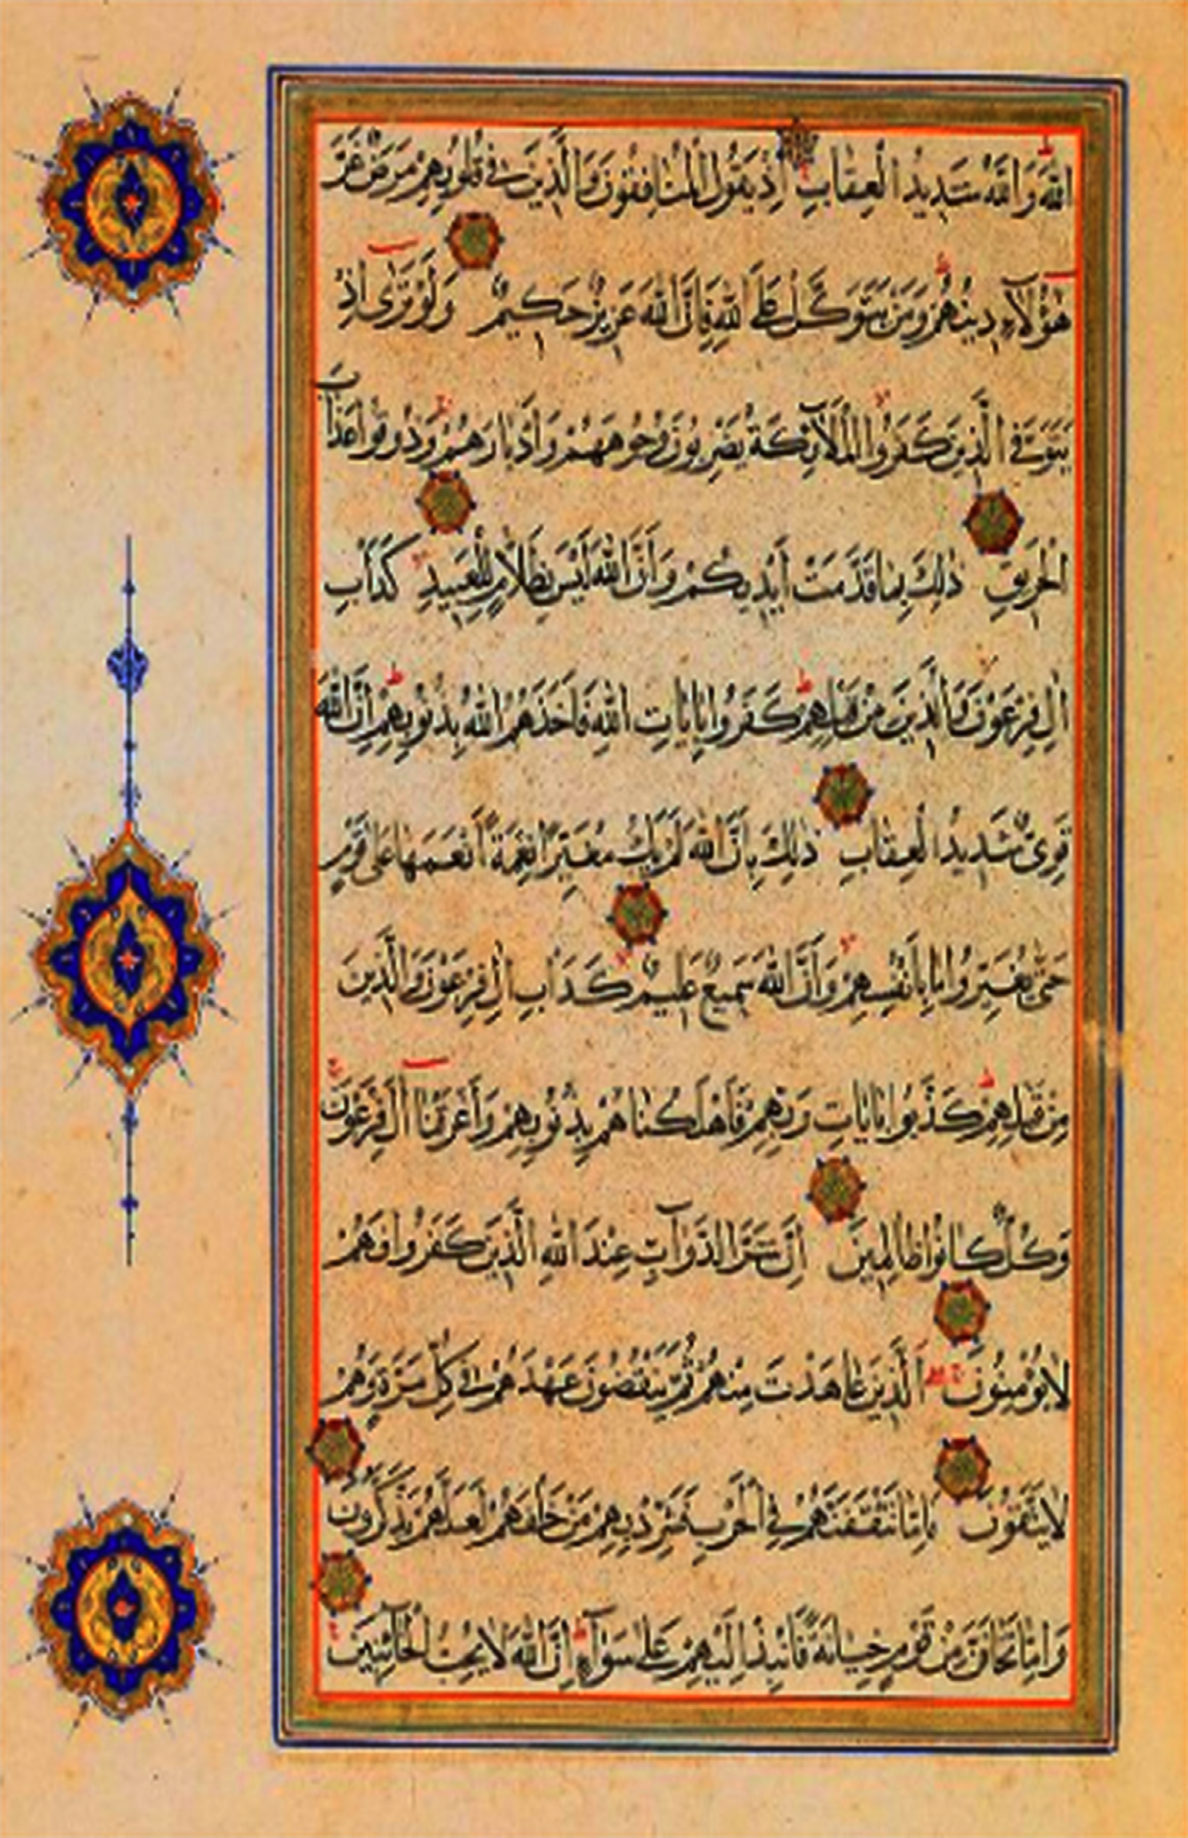 اللَّهَ وَاللَّهُ شَدِيدُ الْعِقَابِ إِذْ يَقُولُ الْمُنَافِقُونَ وَالَّذِينَ فِي قُلُوبِهِمْ مَرَضٌ غَرَّ
هٰؤُلَآءِ دِينُهُمْ وَمَنْ يَتَوَكَّلْ عَلَى اللَّهِ فَإِنَّ اللَّهَ عَزِيزٌ حَكِيمٌ وَلَوْ تَرٰى إِذْ
يَتَوَفَّى الَّذِينَ كَفَرُوا الْمَلَآئِكَةُ يَضْرِبُونَ وُجُوهَهُمْ وَأَدْبَارَهُمْ وَذُوقُوا عَذَابَ
الْحَرِيقِ ذٰلِكَ بِمَا قَدَّمَتْ أَيْدِيكُمْ وَأَنَّ اللَّهَ لَيْسَ بِظَلَّامٍ لِلْعَبِيدِ كَدَأْبِ
اٰلِ فِرْعَوْنَ وَالَّذِينَ مِنْ قَبْلِهِمْ كَفَرُوا بِاٰيَاتِ اللَّهِ فَأَخَذَهُمُ اللَّهُ بِذُنُوبِهِمْ إِنَّ اللَّهَ
قَوِيٌّ شَدِيدُ الْعِقَابِ ذٰلِكَ بِأَنَّ اللَّهَ لَمْ يَكُ مُغَيِّرًا نِعْمَةً أَنْعَمَهَا عَلٰى قَوْمٍ
حَتّٰى يُغَيِّرُوا مَا بِأَنْفُسِهِمْ وَأَنَّ اللَّهَ سَمِيعٌ عَلِيمٌ كَدَأْبِ اٰلِ فِرْعَوْنَ وَالَّذِينَ
مِنْ قَبْلِهِمْ كَذَّبُوا بِاٰيَاتِ رَبِّهِمْ فَأَهْلَكْنَاهُمْ بِذُنُوبِهِمْ وَأَغْرَقْنَا اٰلَ فِرْعَوْنَ
وَكُلٌّ كَانُوا ظَالِمِينَ إِنَّ شَرَّ الدَّوَآبِّ عِنْدَ اللَّهِ الَّذِينَ كَفَرُوا فَهُمْ
لَا يُؤْمِنُونَ الَّذِينَ عَاهَدْتَ مِنْهُمْ ثُمَّ يَنْقُضُونَ عَهْدَهُمْ فِي كُلِّ مَرَّةٍ وَهُمْ
لَا يَتَّقُونَ فَإِمَّا تَثْقَفَنَّهُمْ فِي الْحَرْبِ فَشَرِّدْ بِهِمْ مَنْ خَلْفَهُمْ لَعَلَّهُمْ يَذَّكَّرُونَ
وَإِمَّا تَخَافَنَّ مِنْ قَوْمٍ خِيَانَةً فَانْبِذْ إِلَيْهِمْ عَلٰى سَوَآءٍ إِنَّ اللَّهَ لَا يُحِبُّ الْخَآئِنِينَ